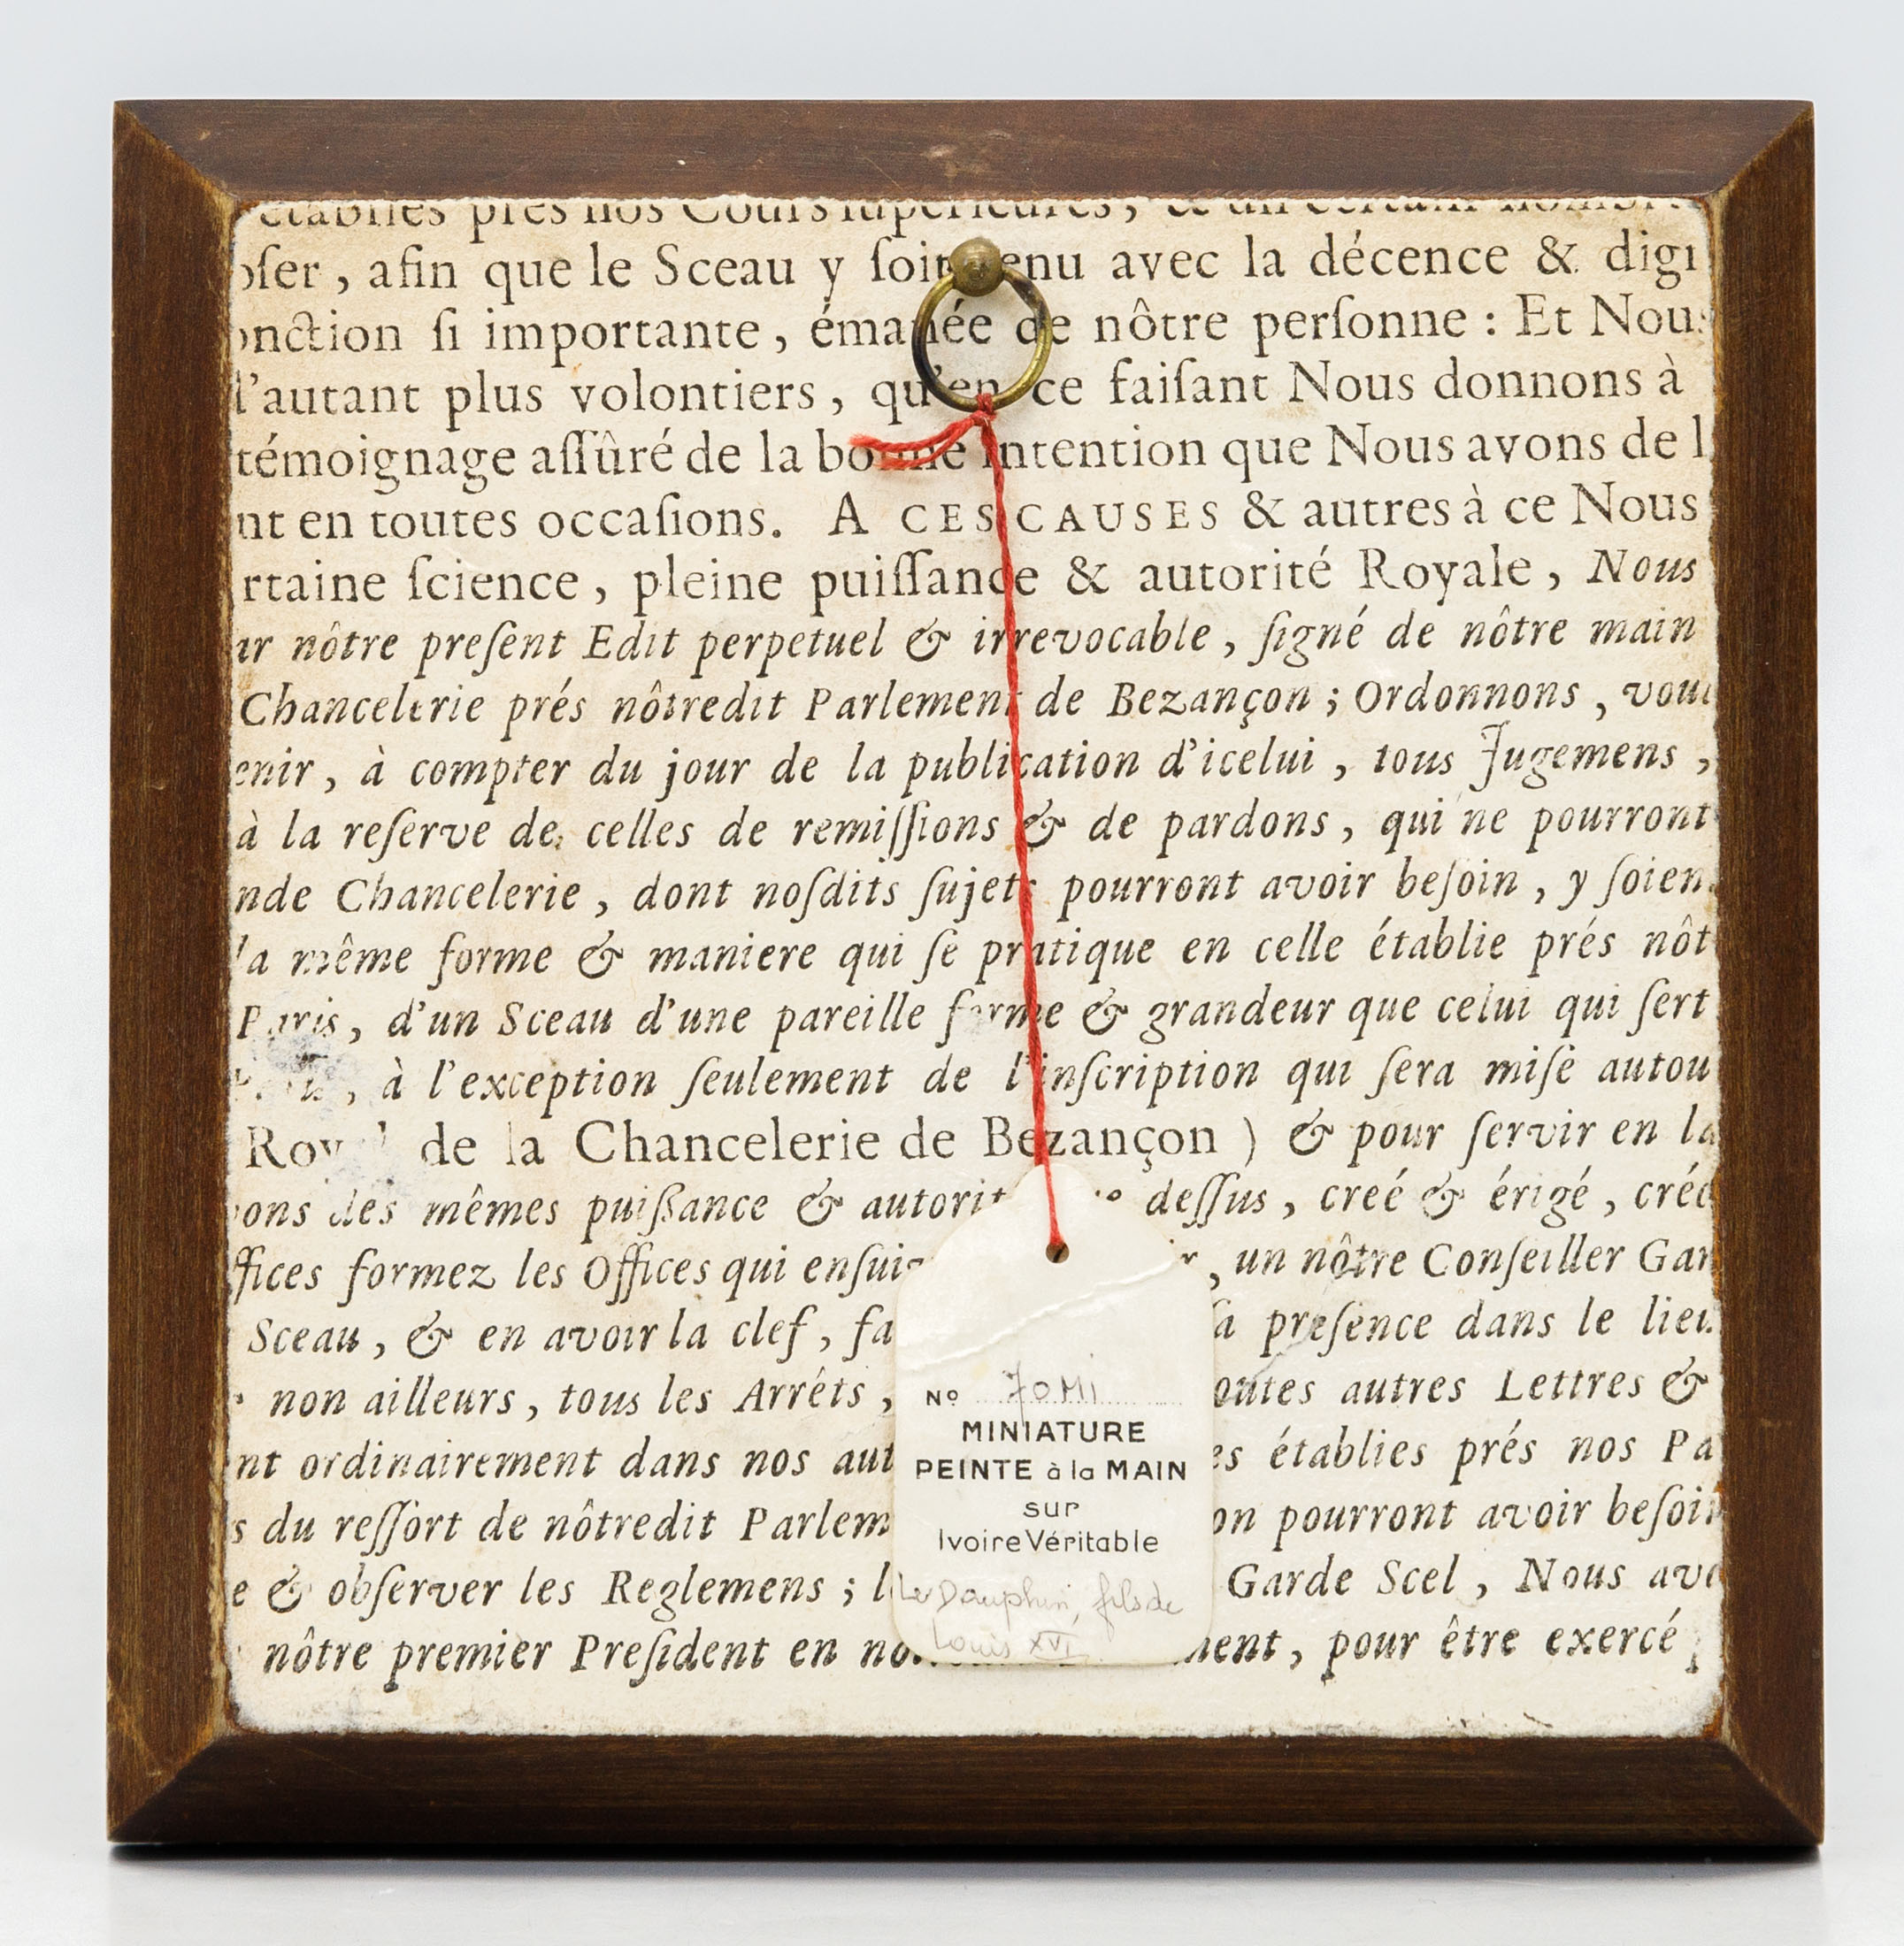 établies prés nos Cours superieures, & un certain nombr
oſer, afin que le Sceau y ſoit tenu avec la décence & digi
onction ſi importante, émanée de nôtre perſonne : Et Nous
l'autant plus volontiers, qu'en ce faiſant Nous donnons à
témoignage aſſûré de la bonne intention que Nous avons de l
nt en toutes occaſions. A CES CAUSES & autres à ce Nous
rtaine ſcience, pleine puiſſance & autorité Royale, Nous
ar nôtre preſent Edit perpetuel & irrevocable, ſigné de nôtre main
Chancelerie prés nôtredit Parlement de Bezançon ; Ordonnons, voul
enir, à compter du jour de la publication d'icelui, tous Jugemens,
à la reſerve de celles de remiſſions & de pardons, qui ne pourront
nde Chancelerie, dont noſdits ſujets pourront avoir beſoin, y ſoien
la même forme & maniere qui ſe pratique en celle établie prés nôt
Paris, d'un Sceau d'une pareille forme & grandeur que celui qui ſert
, à l'exception ſeulement de l'inſcription qui ſera miſe autou
Royal de la Chancelerie de Bezançon ) & pour ſervir en la
ons des mêmes puiſſance & autorit deſſus, creé & érigé, créo
ffices formez les Offices qui enſui r, un nôtre Conſeiller Gar
Sceau, & en avoir la clef, fa ſa preſence dans le lieu
non ailleurs, tous les Arrêts, toutes autres Lettres &
nt ordinairement dans nos aut es établies prés nos Pa
s du reſſort de nôtredit Parlem on pourront avoir beſoin
e & obſerver les Reglemens ; l Garde Scel, Nous avo
nôtre premier Preſident en no ment, pour être exercé
No 70Mi
MINIATURE
PEINTE à la MAIN
sur
Ivoire Véritable
Le Dauphin, fils de
Louis XVI